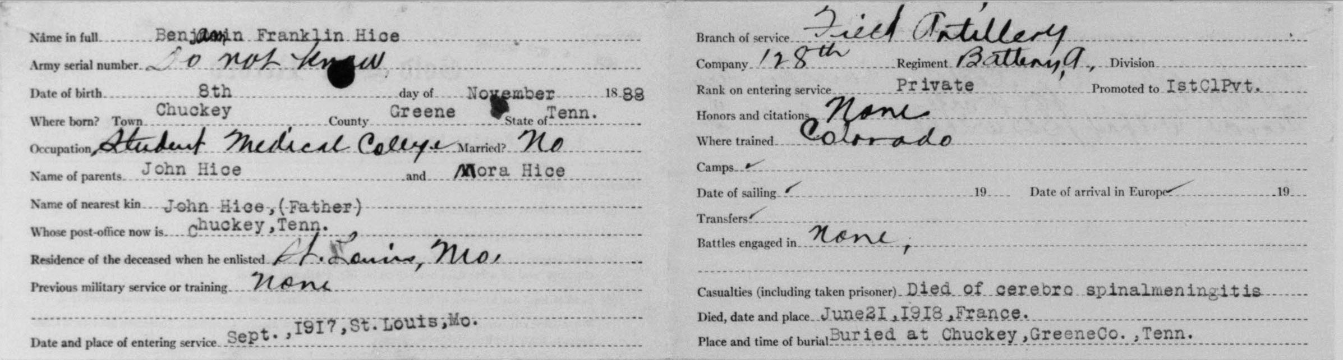 Name in full Benjamin Franklin Hice
Army serial number Do not know
Date of birth 8th day of November 1888
Where born? Town Chuckey County Greene State of Tenn.
Occupation Student Medical College Married? No
Name of parents John Hice and Mora Hice
Name of nearest kin John Hice,(Father)
Whose post-office now is Chuckey,Tenn.
Residence of the deceased when he enlisted St. Louis, Mo.
Previous military service or training None
Date and place of entering service Sept.,1917,St.Louis,Mo.
Branch of service Field Artillery
Company 128th Regiment Battery A, Division
Rank on entering service Private Promoted to IstClPvt.
Honors and citations None
Where trained Colorado
Camps ✓
Date of sailing ✓ 19 Date of arrival in Europe ✓ 19
Transfers ✓
Battles engaged in None,
Casualties (including taken prisoner) Died of cerebro spinalmeningitis
Died, date and place June21,1918,France.
Place and time of burial Buried at Chuckey,GreeneCo.,Tenn.